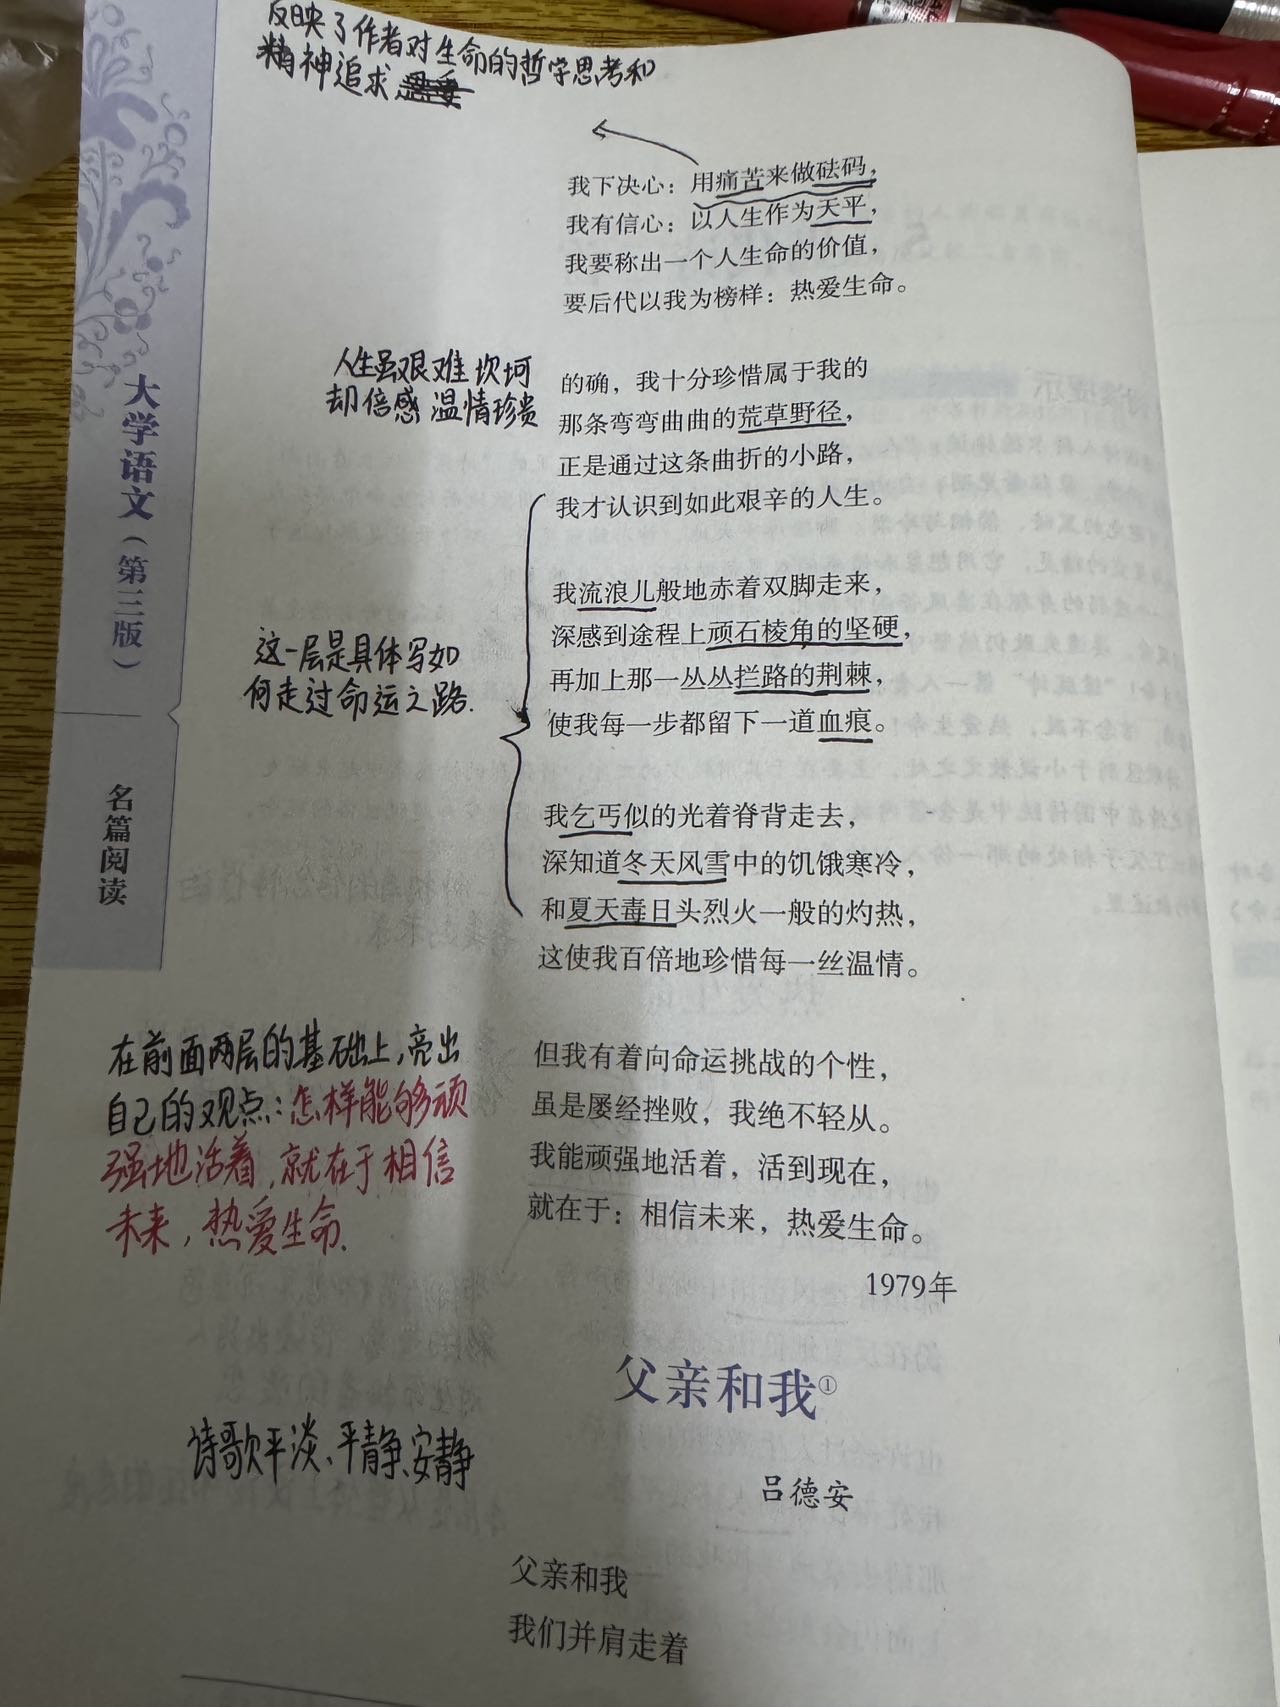 反映了作者对生命的哲学思考和
精神追求
我下决心：用痛苦来做砝码，
我有信心：以人生作为天平，
我要称出一个人生命的价值，
要后代以我为榜样：热爱生命。
人生虽艰难坎坷
却倍感温情珍贵
的确，我十分珍惜属于我的
那条弯弯曲曲的荒草野径，
正是通过这条曲折的小路，
我才认识到如此艰辛的人生。
大学语文（第三版）
我流浪儿般地赤着双脚走来，
深感到途程上顽石棱角的坚硬，
再加上那一丛丛拦路的荆棘，
使我每一步都留下一道血痕。
这一层是具体写如
何走过命运之路.
名篇阅读
我乞丐似的光着脊背走去，
深知道冬天风雪中的饥饿寒冷，
和夏天毒日头烈火一般的灼热，
这使我百倍地珍惜每一丝温情。
在前面两层的基础上,亮出
自己的观点:怎样能够顽
强地活着,就在于相信
未来,热爱生命.
但我有着向命运挑战的个性，
虽是屡经挫败，我绝不轻从。
我能顽强地活着，活到现在，
就在于：相信未来，热爱生命。
1979年
父亲和我①
诗歌平淡、平静、安静
吕德安
父亲和我
我们并肩走着